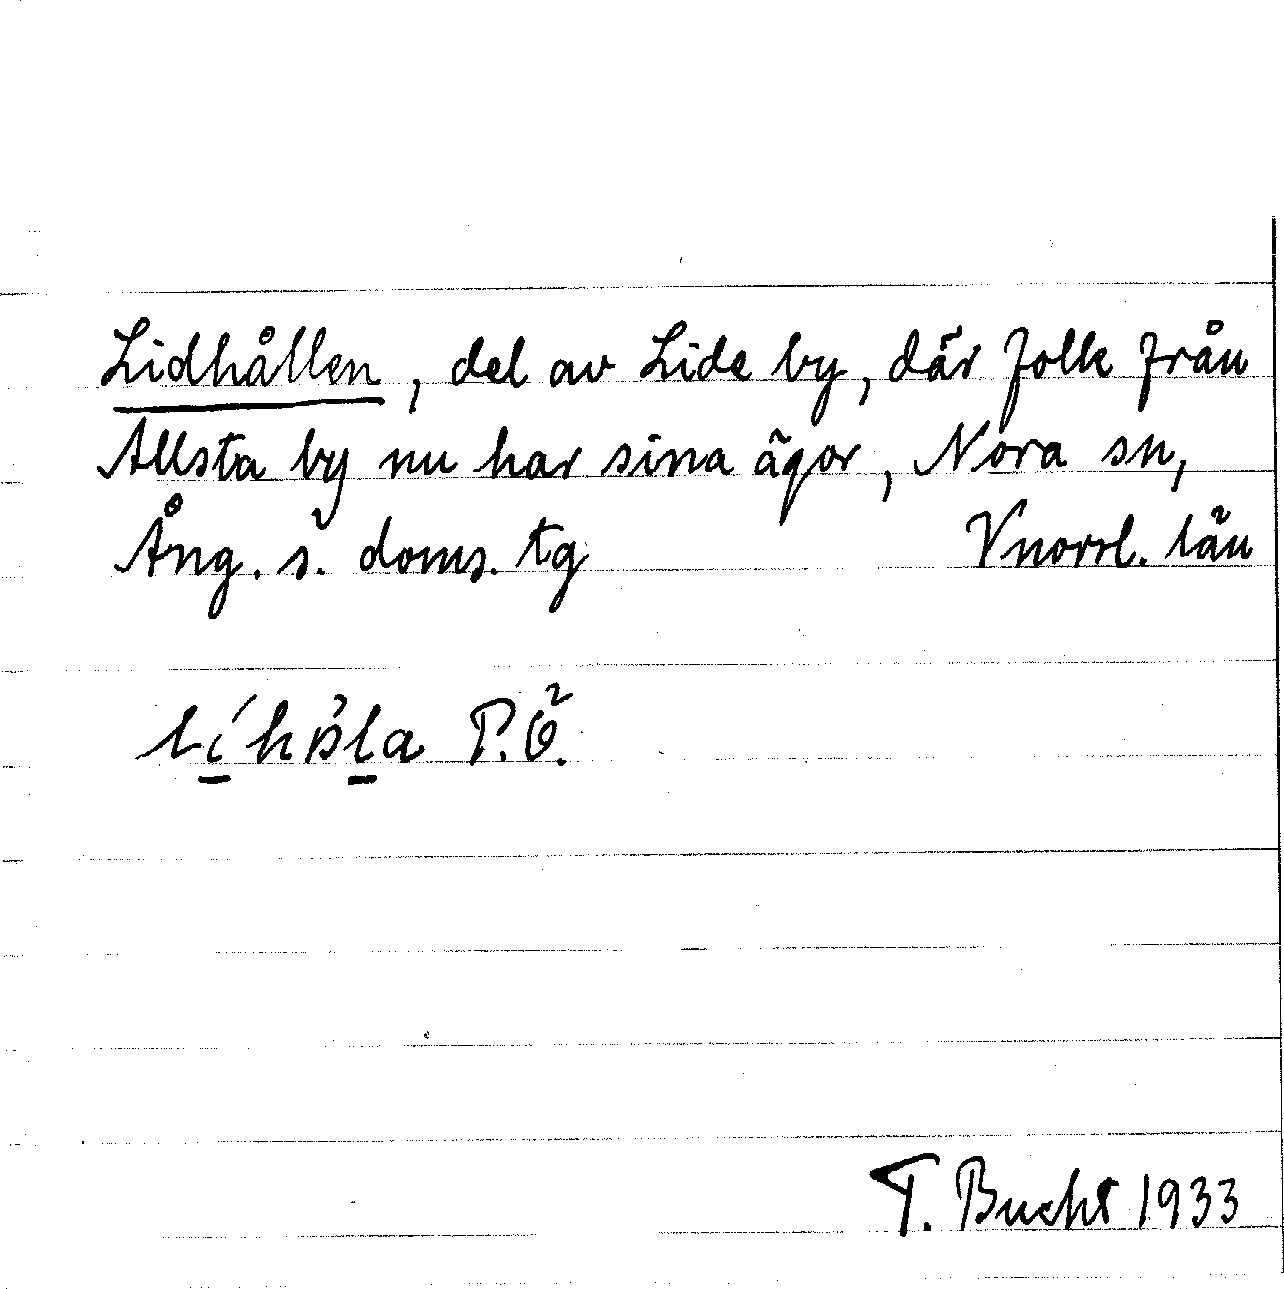 Lidhållen, del av Lide by, där folk från
Allsta by nu har sina ägor, Nora sn,
Ång. s. doms. tg Vnorrl. län
P.Ö.
T. Bucht 1933